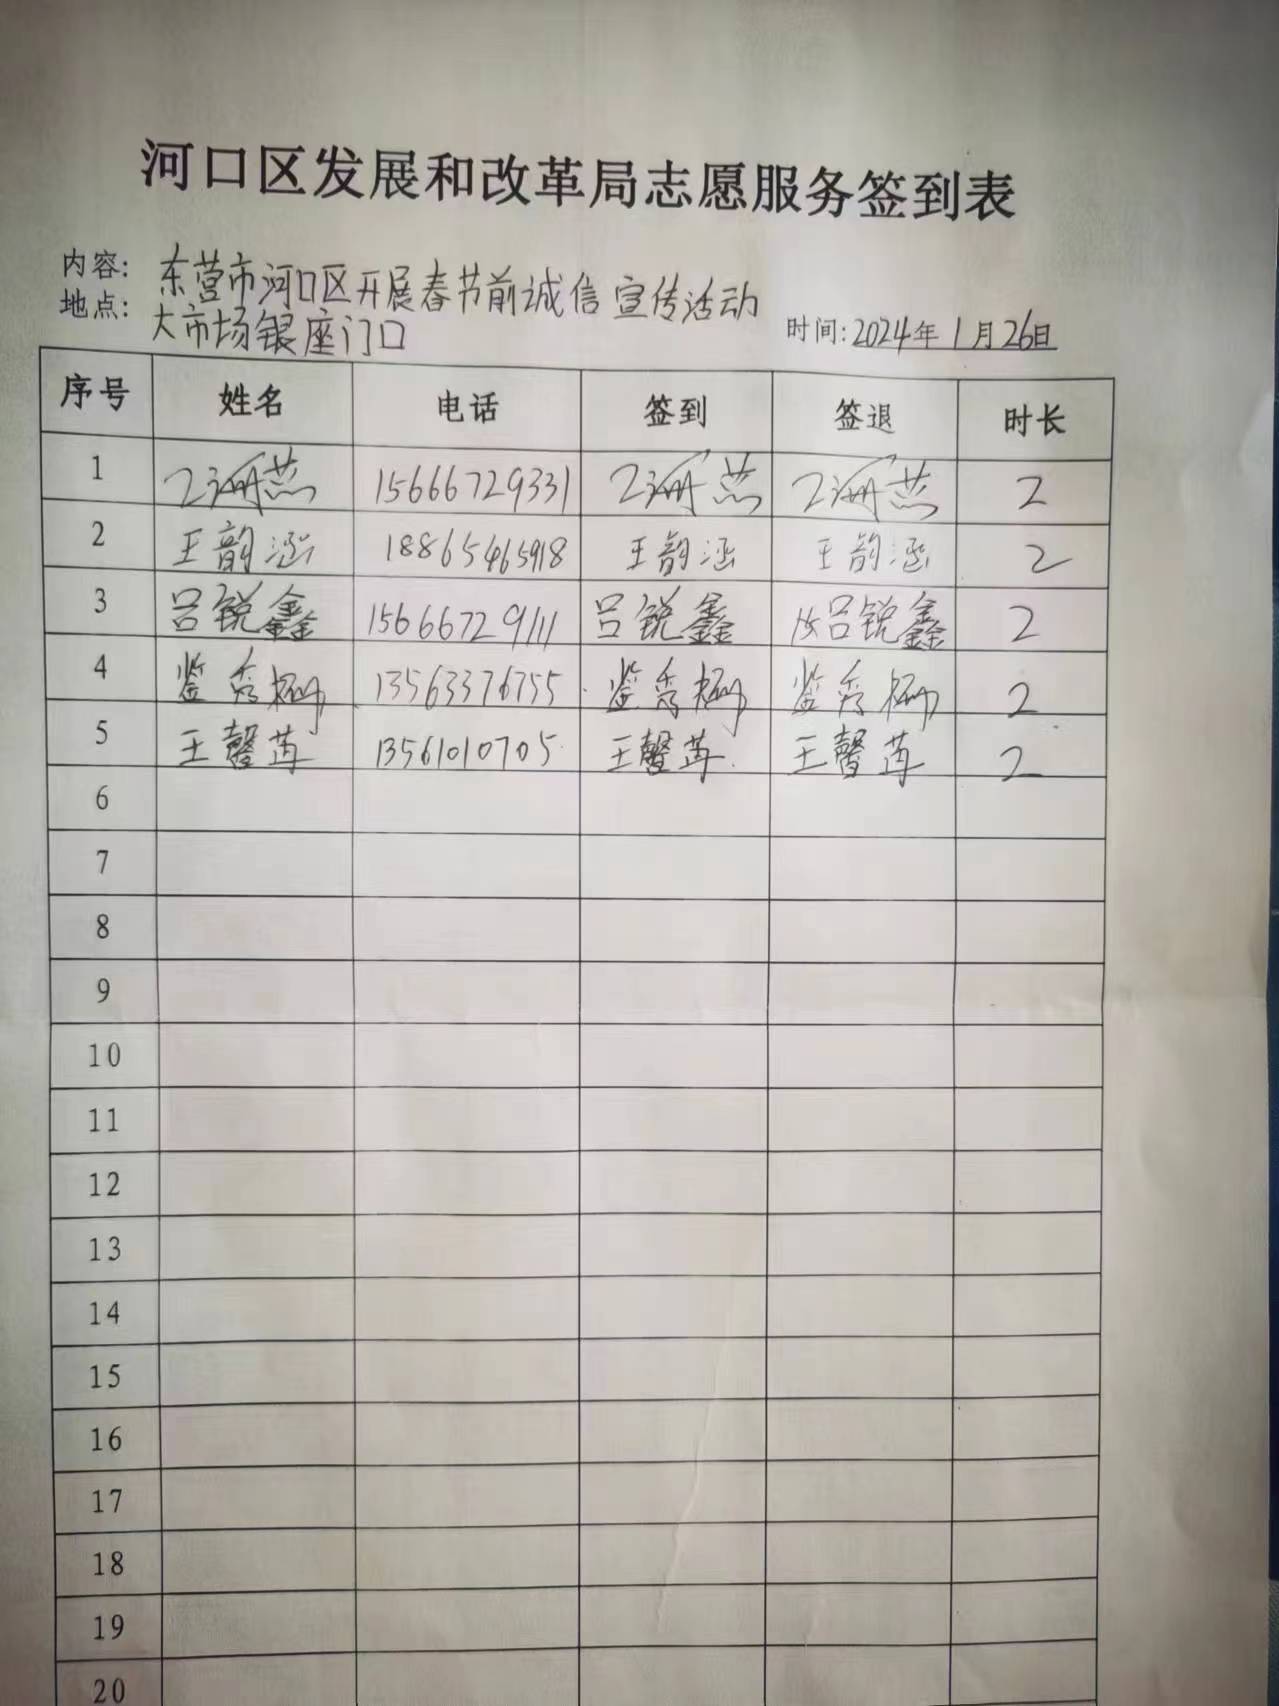 河口区发展和改革局志愿服务签到表
内容: 东营市河口区开展春节前诚信宣传活动
地点: 大市场银座门口
时间:2024年1月26日
序号 姓名 电话 签到 签退 时长
1 15666729331 2
2 王韵涵 18865465918 王韵涵 王韵涵 2
3 吕锐鑫 15666729111 吕锐鑫 吕锐鑫 2
4 13563376755 2
5 王馨苒 13561010705 王馨苒 王馨苒 2
6
7
8
9
10
11
12
13
14
15
16
17
18
19
20